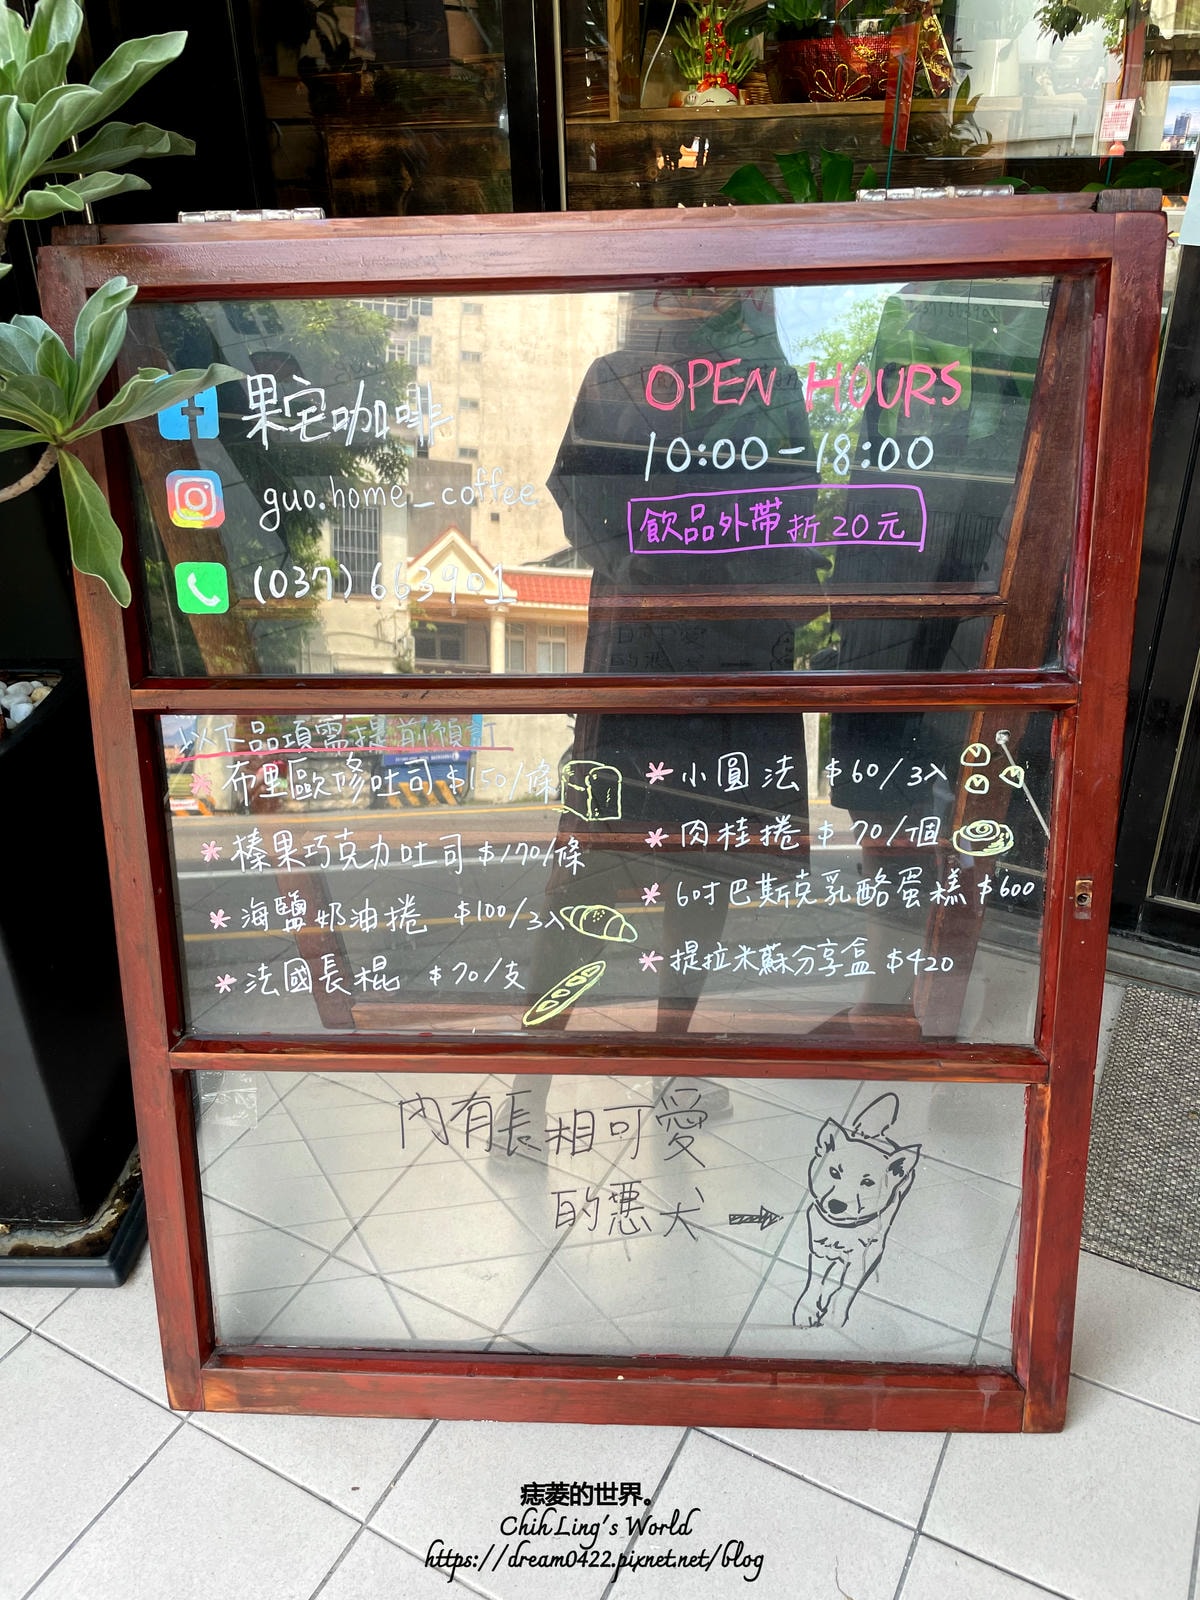 果宅咖啡
guo.home_coffee
(037)663901
OPEN HOURS
10:00-18:00
飲品外帶折20元
以下品項需提前預訂
*布里歐修吐司 $150/條
*榛果巧克力吐司 $170/條
*海鹽奶油捲 $100/3入
*法國長棍 $70/支
*小圓法 $60/3入
*肉桂捲 $70/個
*6吋巴斯克乳酪蛋糕 $600
*提拉米蘇分享盒 $420
內有長相可愛
的惡犬
痣菱的世界。
ChihLing's World
https://dream0422.pixnet.net/blog